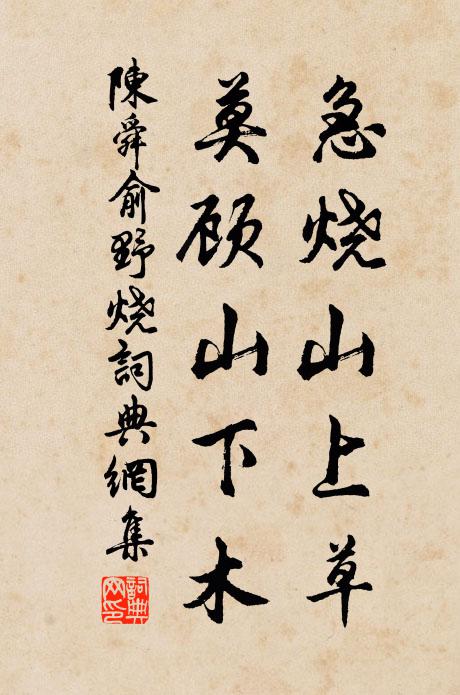 急烧山上草
莫顾山下木
陳舜俞野烧詞典網集
詞典網印